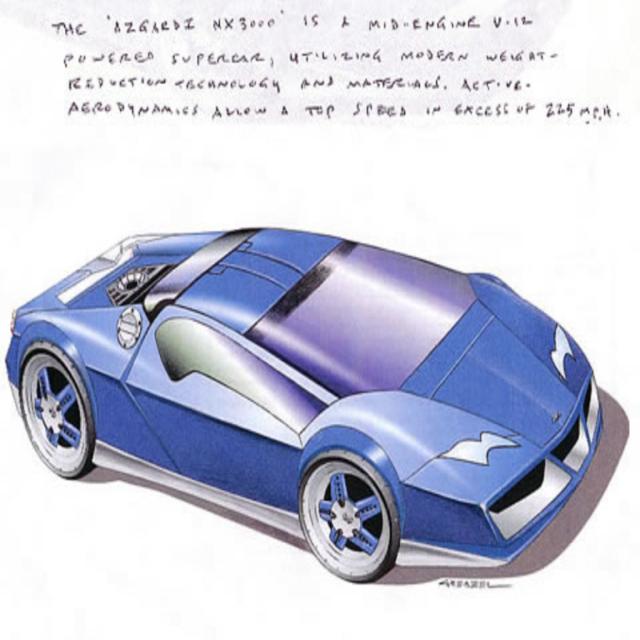 THE 'AZGARDI NX3000' IS A MID-ENGINE V-12
POWERED SUPERCAR, UTILIZING MODERN WEIGHT-
REDUCTION TECHNOLOGY AND MATERIALS. ACTIVE-
AERODYNAMICS ALLOW A TOP SPEED IN EXCESS OF 225 M.P.H.